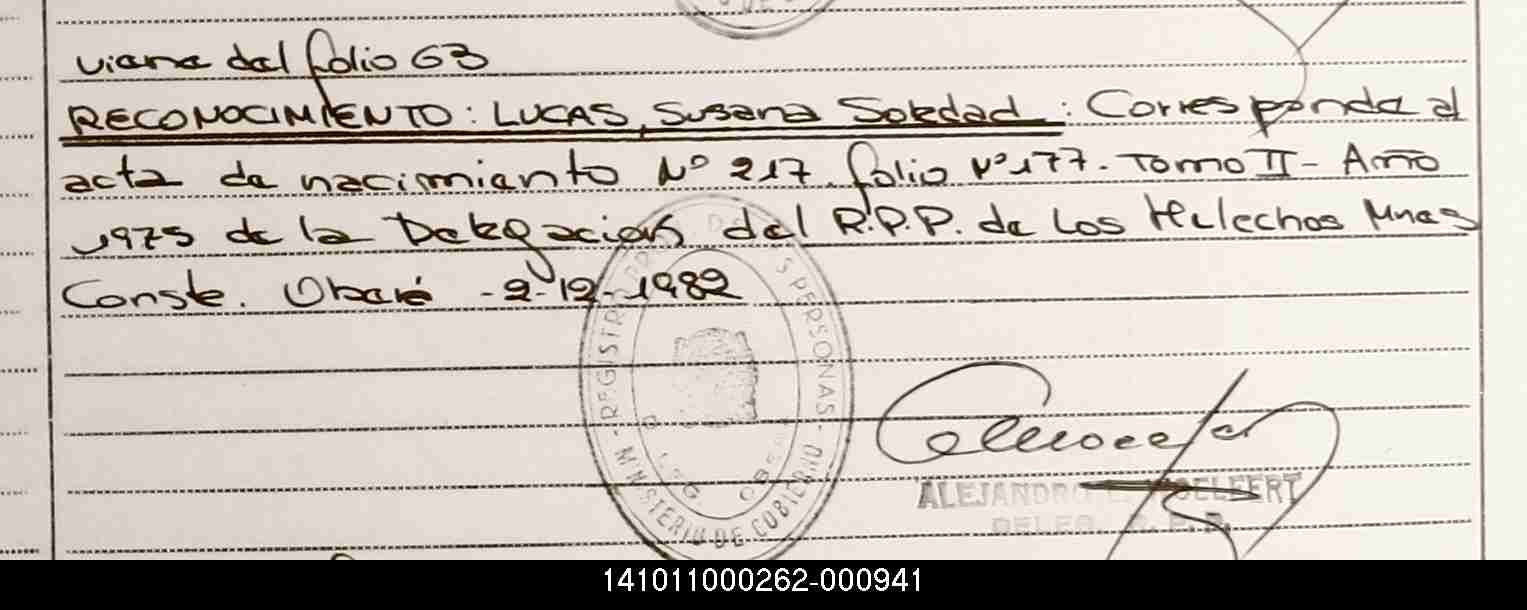 viene del folio 63
RECONOCIMIENTO: LUCAS, Susana Soledad: Corresponde al
acta de nacimiento Nº 217. folio Nº 177. Tomo II - Año
1975 de la Delegación del R.P.P. de Los Helechos Mnes
Conste. Oberá - 2-12-1982
- REGISTRO PROV. DE LAS PERSONAS -
MINISTERIO DE GOBIERNO
DELEG. OBERÁ
ALEJANDRO
DELEG. R. P. P.
141011000262-000941